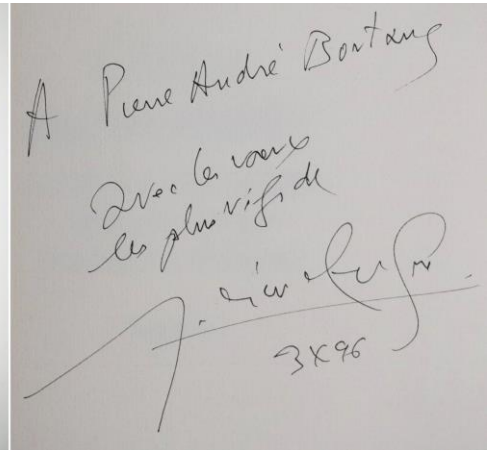 A Pierre André Boutang
avec les vœux
les plus vifs de
3 X 96